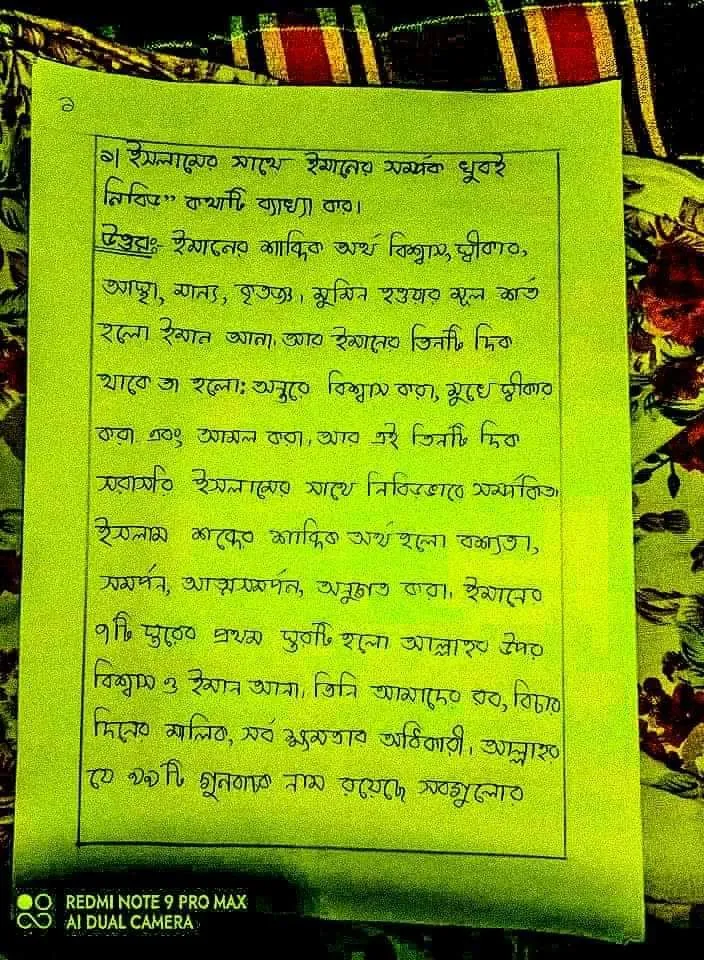 ১
১। ইসলামের সাথে ইমানের সম্পর্ক খুবই
নিবিড়” কথাটি ব্যাখ্যা কর।
উত্তরঃ- ইমানের শাব্দিক অর্থ বিশ্বাস, স্বীকার,
আস্থা, মান্য, কৃতজ্ঞ। মুমিন হওয়ার মূল শর্ত
হলো ইমান আনা, আর ইমানের তিনটি দিক
থাকে তা হলো: অন্তরে বিশ্বাস করা, মুখে স্বীকার
করা এবং আমল করা, আর এই তিনটি দিক
সরাসরি ইসলামের সাথে নিবিড়ভাবে সম্পর্কিত।
ইসলাম শব্দের শাব্দিক অর্থ হলো বশ্যতা,
সমর্পন, আত্মসমর্পন, অনুগত করা। ইমানের
৭টি স্তরের প্রথম স্তরটি হলো আল্লাহর উপর
বিশ্বাস ও ইমান আনা, তিনি আমাদের রব, বিচার
দিনের মালিক, সর্ব ক্ষমতার অধিকারী। আল্লাহর
যে ৯৯টি গুনবাচক নাম রয়েছে সবগুলোর
REDMI NOTE 9 PRO MAX
AI DUAL CAMERA